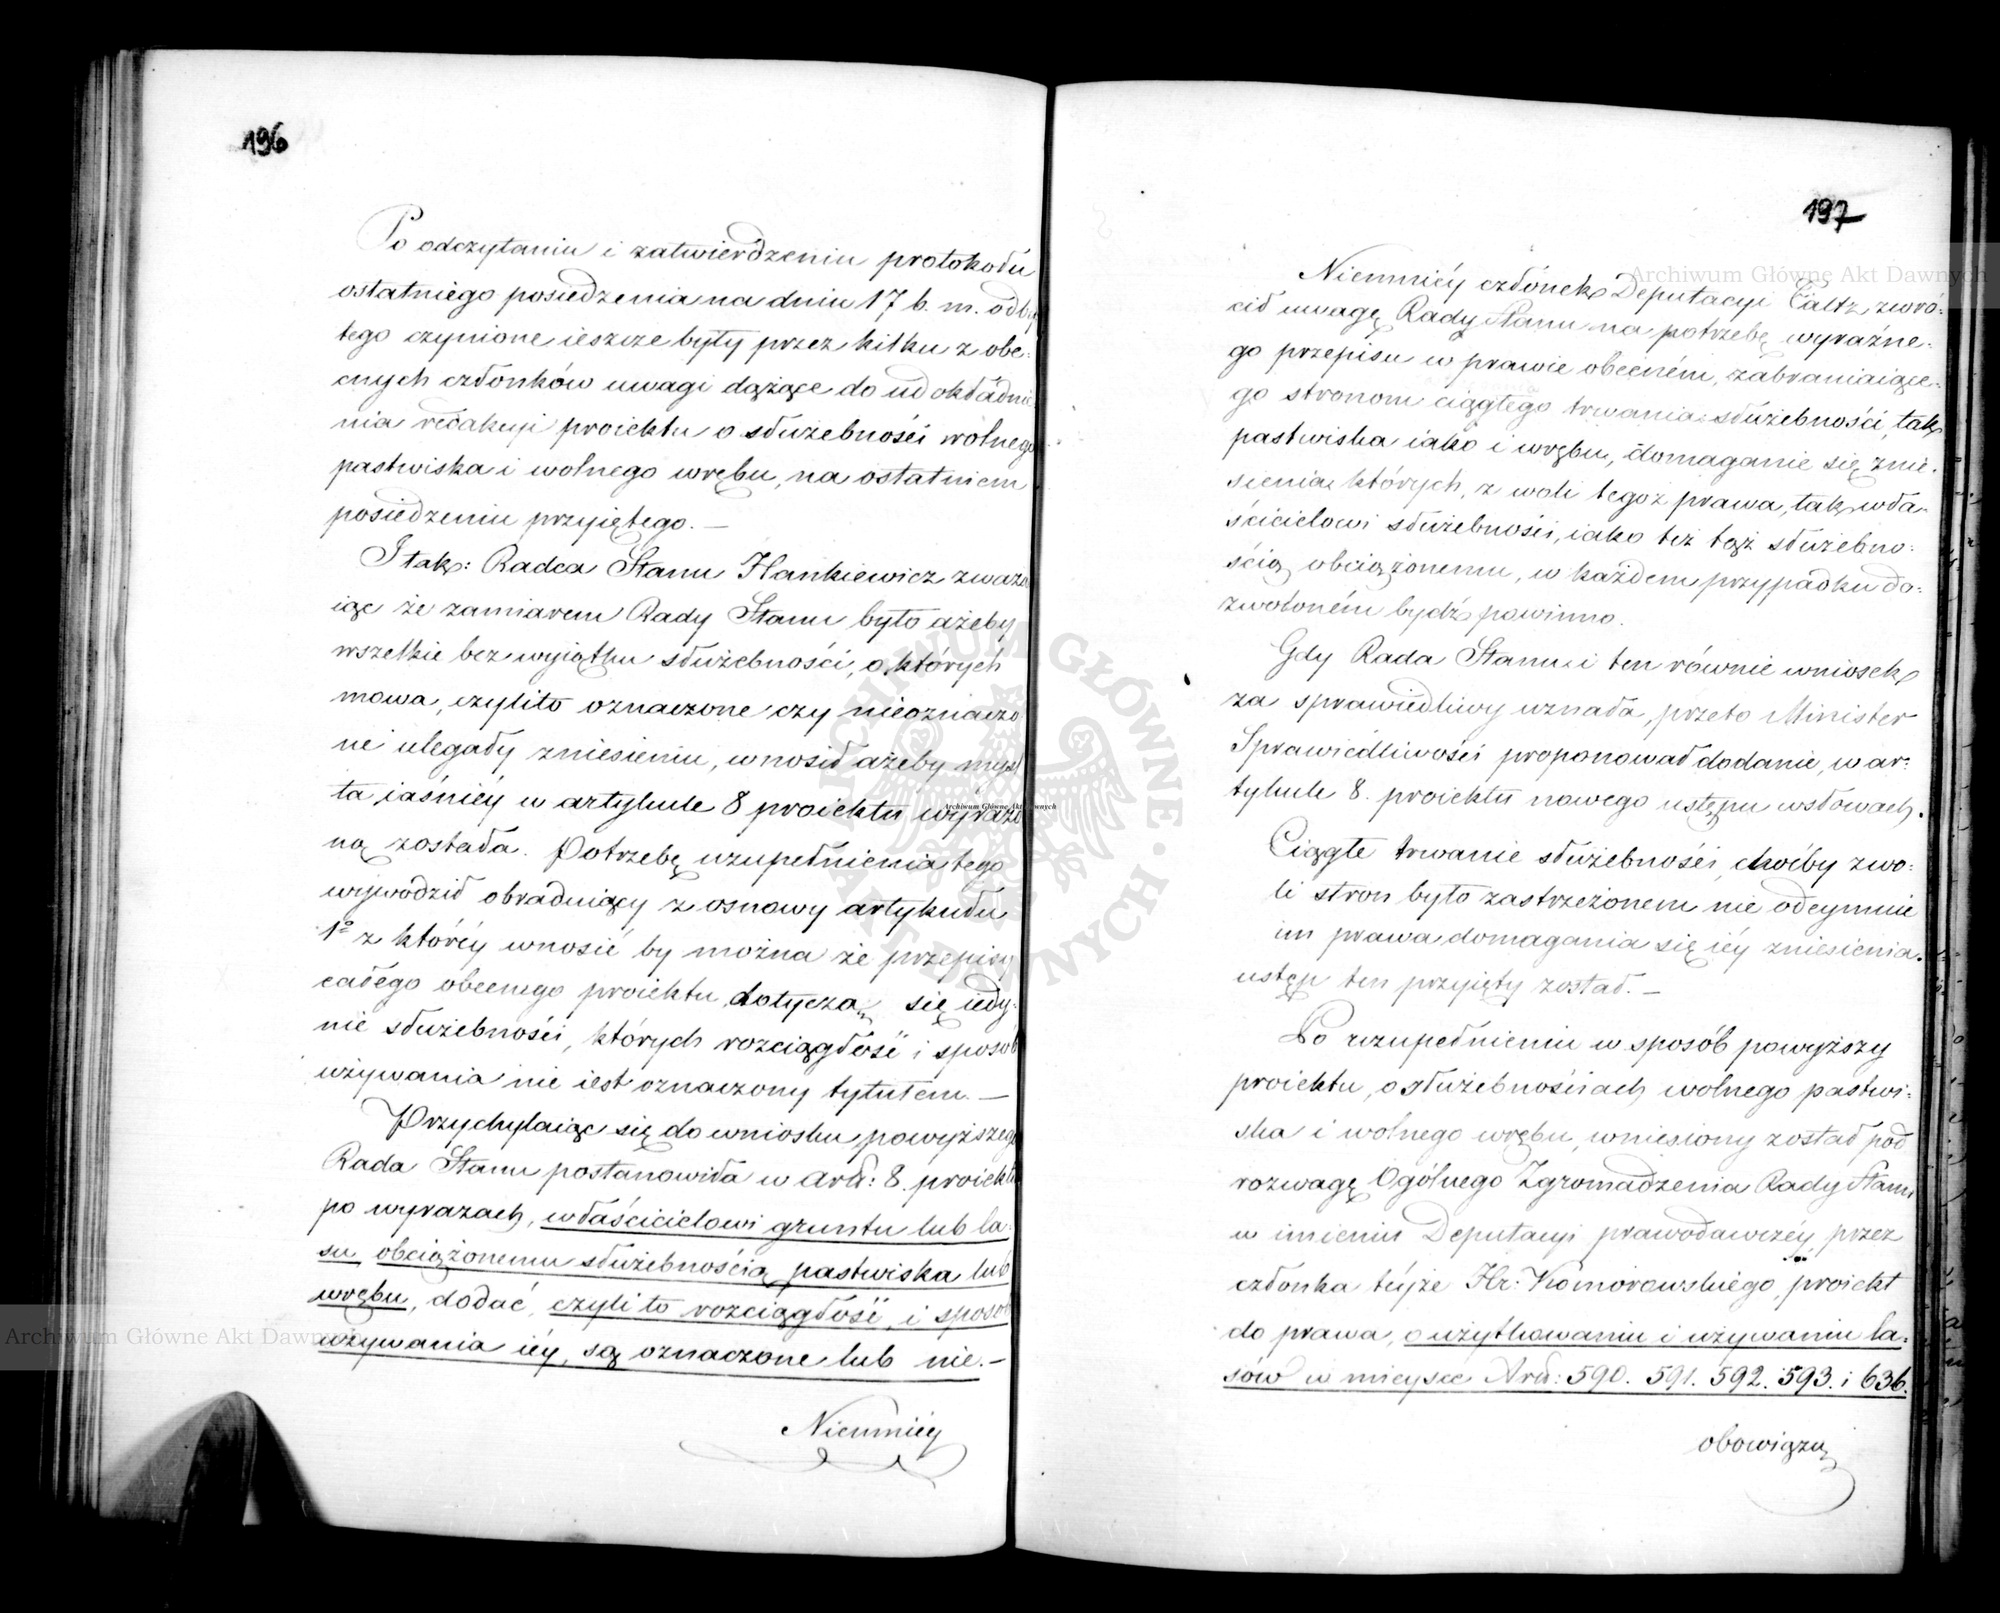 196
Po odczytaniu i zatwierdzeniu protokołu
ostatniego posiedzenia na dniu 17 b. m. odby
tego czynione ieszcze były przez kilku z obe:
cnych członków uwagi dążące do udokładnie
nia redakcyi proiektu o służebności wolnego
pastwiska i wolnego wrębu, na ostatniem
posiedzeniu przyiętego. —
I tak: Radca Stanu Hankiewicz zważa
iąc że zamiarem Rady Stanu było ażeby
wszelkie bez wyiątku służebności, o których
mowa, czylito oznaczone czy nieoznaczo
ne ulegały zniesieniu, wnosił ażeby myśl
ta iaśniéy w artykule 8 proiektu wyrażo
ną została. Potrzebę uzupełnienia tego
wywodził obraduiący z osnowy artykułu
1º z któréy wnosić by można że przepisy
całego obecnego proiektu dotyczą się iedy:
nie służebności, których rozciągłość i sposób
używania nie iest oznaczony tytułem. —
Przychylaiąc się do wniosku powyższego
Rada Stanu postanowiła w Art: 8. proiektu
po wyrazach, właścicielowi gruntu lub la:
su obciążonemu służebnością pastwiska lub
wrębu, dodać, czyli to rozciągłość i sposób
używania iéy, są oznaczone lub nie. —
Niemniéy
197
Niemniéy członek Deputacyi zwró:
cił uwagę Rady Stanu na potrzebę wyraźne:
go przepisu w prawie obecném, zabraniaiące:
go stronom ciągłego trwania służebności, tak
pastwiska iako i wrębu, domaganie się znie:
sienia których, z woli tegoż prawa, tak wła:
ścicielowi służebności, iako też tąż służebno:
ścią obciążonemu, w każdem przypadku do:
zwoloném bydź powinno.
Gdy Rada Stanu i ten równie wniosek
za sprawiedliwy uznała, przeto Minister
Sprawiedliwości proponował dodanie, w ar:
tykule 8. proiektu nowego ustępu w słowach.
Ciągłe trwanie służebności, choćby z wo:
li stron było zastrzeżonem nie odeymuie
im prawa domagania się iéy zniesienia.
ustęp ten przyięty został. —
Po uzupełnieniu w sposób powyższy
proiektu, o służebnościach wolnego pastwi:
ska i wolnego wrębu, wniesiony został pod
rozwagę Ogólnego Zgromadzenia Rady Stanu
w imieniu Deputacyi prawodawczéy przez
członka téyże Hr: Komorowskiego, proiekt
do prawa, o użytkowaniu i używaniu la:
sów w mieysce Art: 590. 591. 592. 593. i 636.
obowiązu
Archiwum Główne Akt Dawnych
Archiwum Główne Akt Dawnych
Archiwum Główne Akt Dawnych
ARCHIWUM GŁÓWNE AKT DAWNYCH